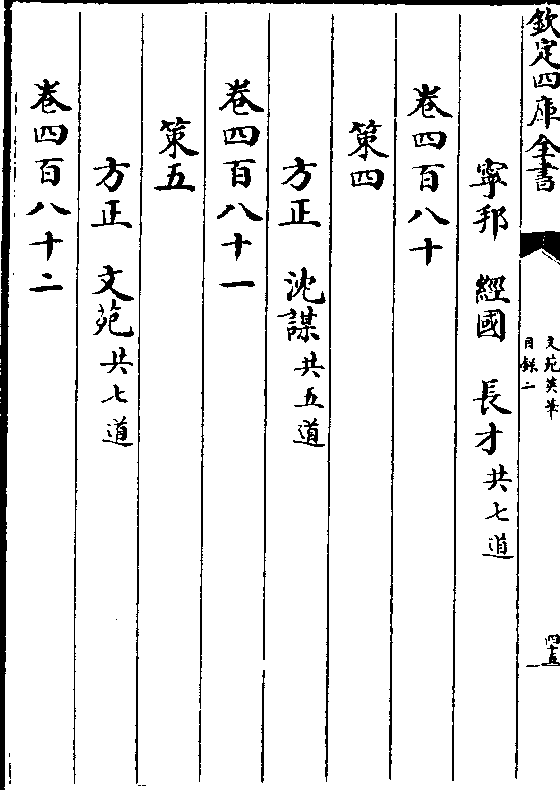 欽定四庫全書
文苑英華
目錄二
四十五
寧邦 經國 長才共七道
卷四百八十
策四
方正 沈謀共五道
卷四百八十一
策五
方正 文苑共七道
卷四百八十二